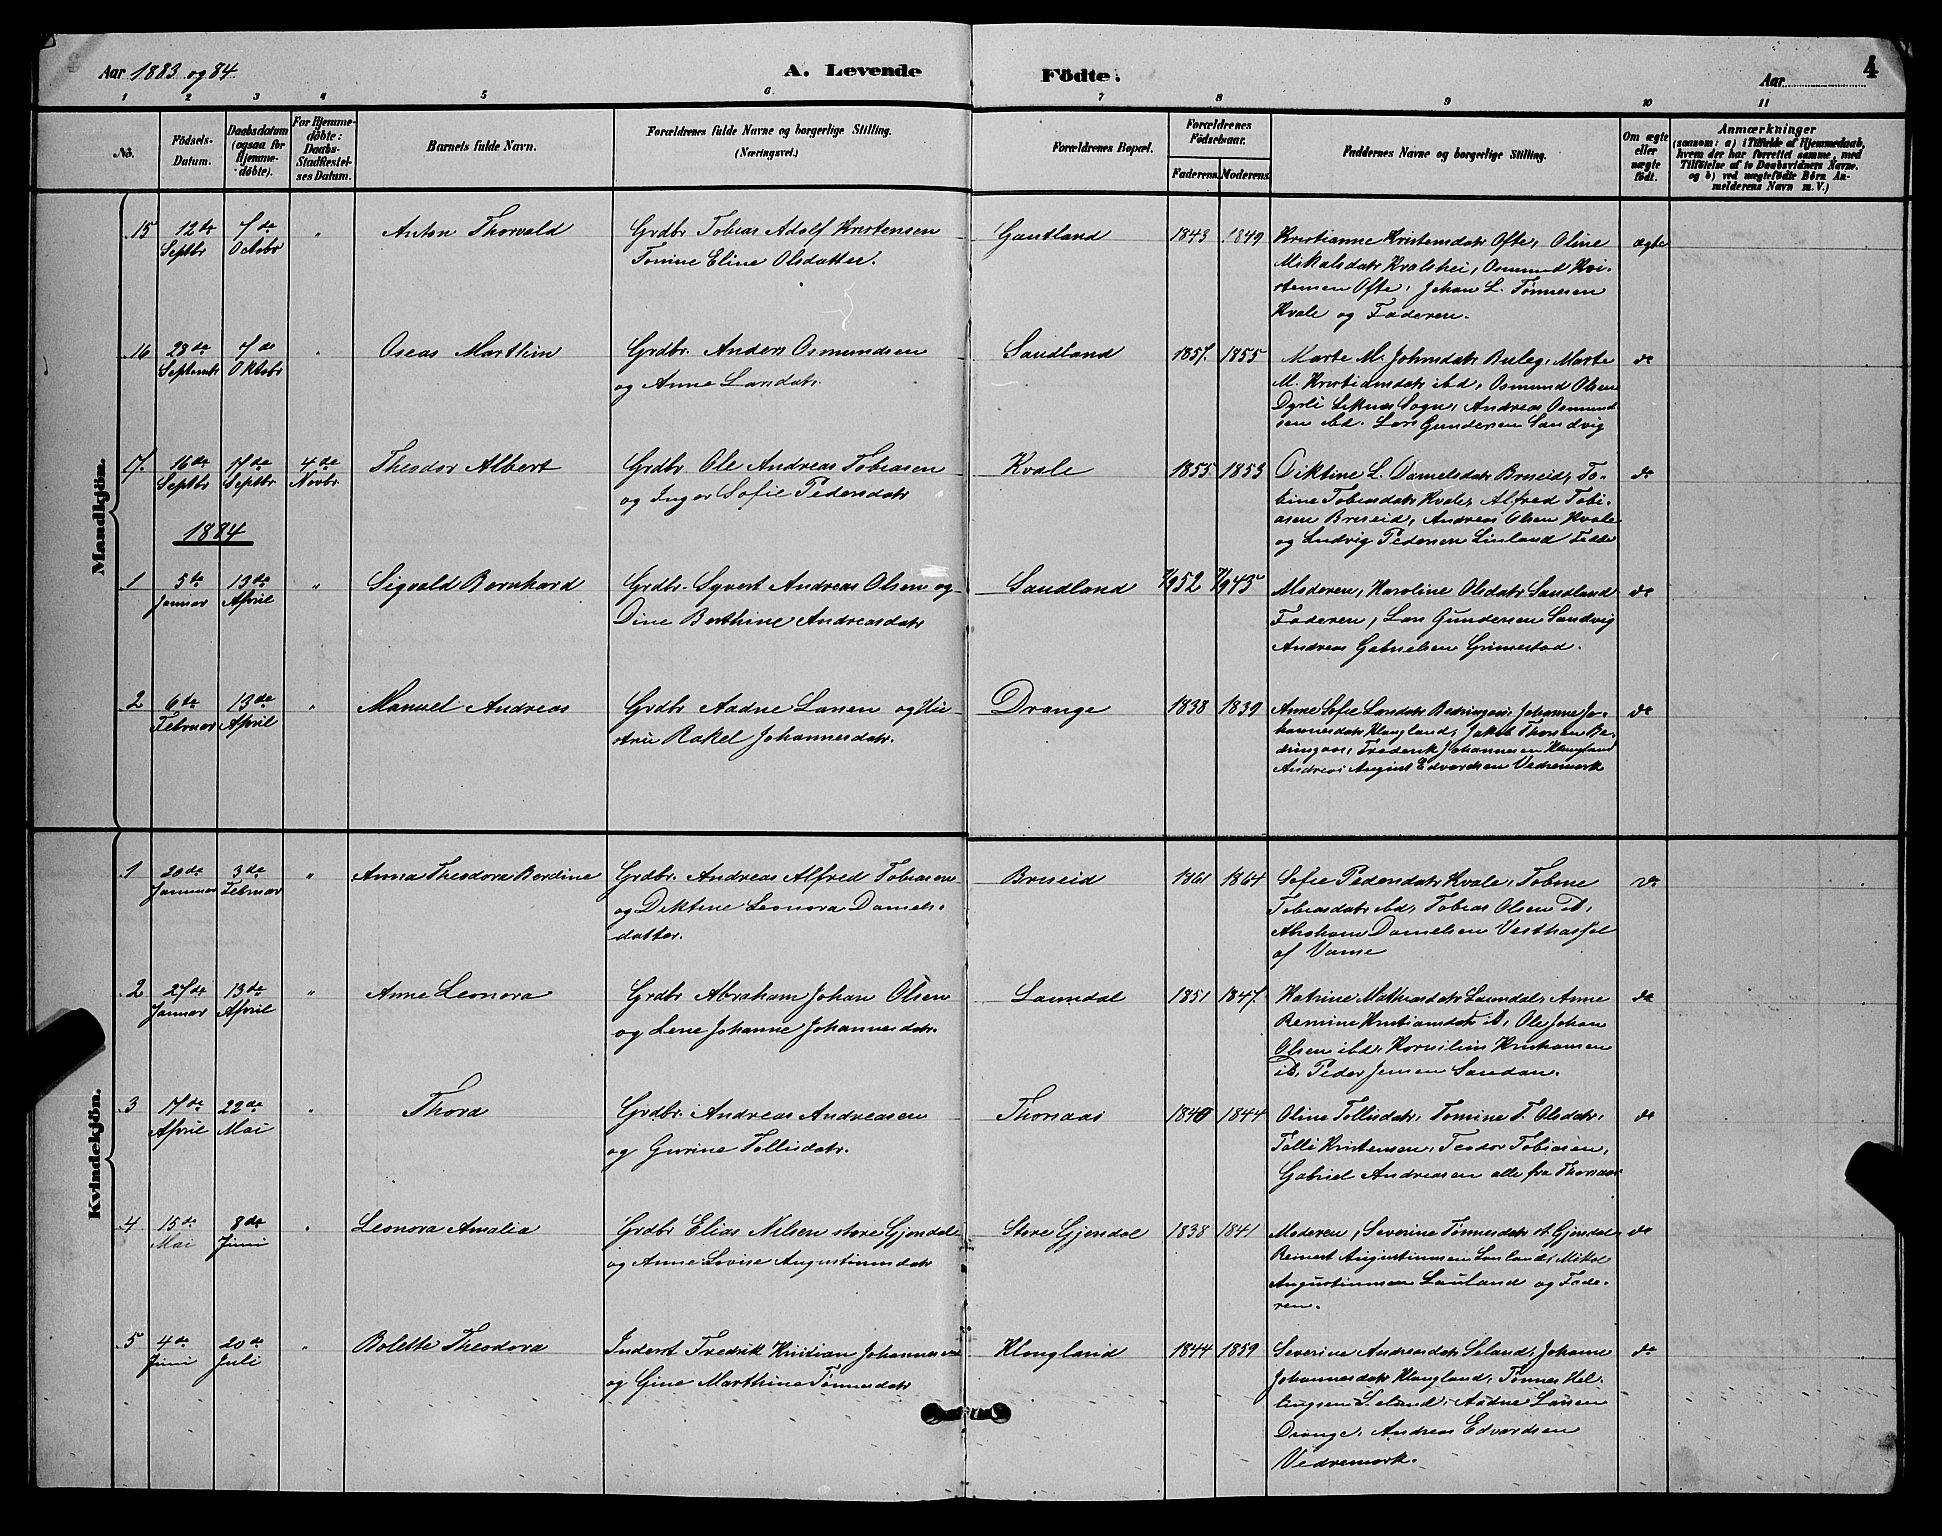 Aar 1883 og 84.
A. Levende
Födte.
Aar
4
1 2 3 4 5 6 7 8 9 10 11
No.
Födsels-
Datum.
Daabsdatum
(ogsaa for
Hjemme-
döbte).
For Hjemme-
döbte:
Daabs-
Stadfæstel-
ses Datum.
Barnets fulde Navn.
Forældrenes fulde Navne og borgerlige Stilling.
(Næringsvei.)
Forældrenes Bopæl.
Forældrenes
Födselsaar.
Faderens. Moderens.
Faddernes Navne og borgerlige Stilling.
Om ægte
eller
uægte
født.
Anmærkninger
(saasom: a) i Tilfælde af Hjemmedaab,
hvem der har forrettet samme, med
Tilföielse af to Daabsvidners Navne.
og b) ved uægtefödte Börn An-
melderens Navn m.V.)
Mandkjön.
15 12te Septbr 7de Octobr " Anton Thorvald
Grdbr Tobias Adolf Kristensen
Tomine Eline Olsdatter.
Gautland 1843 1849
Kristianne Kristensdatr Ofte, Oline
Mikalsdatr Kvalshei, Osmund Kri-
stensen Ofte, Johan L. Tønnesen
Kvale og Faderen.
ægte
16 23de Septembr 7de Oktobr " Oseas Marthin
Grdbr. Anders Osmundsen
og Anne Larsdatr.
Sandland 1857. 1855
Marte M. Johnsdatr Buleg, Marte
M. Kristiansdatr ibd, Osmund Olsen
Dyrli Leknes Sogn, Andreas Osmund
sen ibd. Lars Gundersen Sandvig
do
17. 16de Septbr 17de Septbr 4de Novbr Theodor Albert
Grdbr Ole Andreas Tobiasen
og Inger Sofie Pedersdatr
Kvale 1855 1853
Diktine L. Danielsdatr Briseid, To-
bine Tobiasdatr Kvale, Alfred Tobi-
asen Briseid, Andreas Olsen Kvale
og Ludvig Pedersen Linland
do
1884
1 5te Januar 13de April " Sigvald Bernhard
Grdbr. Syvert Andreas Olsen og
Dine Berthine Andreasdatr
Sandland
Moderen, Karoline Olsdatr Sandland
Faderen, Lars Gundersen Sandvig
Andreas Gabrielsen Grimestad.
do
2 6te Februar 13de April " Manuel Andreas
Grdbr Aadne Larsen og Hu-
stru Rakel Johannesdatr.
Drange 1838 1839
Anne Sofie Larsdatr Johanne Jo-
hannesdatr Klungland, Jakob Thorsen
Frederik Johannesen Klungland
Andreas August Edvardsen Vedremork
do
Kvindekjön.
1 20de Januar 3de Februar " Anna Theodora Berdine
Grdbr. Andreas Alfred Tobiasen
og Diktine Leonora Daniels-
datter.
Briseid 1861 1864
Sofie Pedersdatr Kvale, Tobine
Tobiasdatr ibd, Tobias Olsen ib,
Abraham Danielsen Vesthassel
af Vanse
do
2 27de Januar 13de April " Anne Leonora
Grdbr Abraham Johan Olsen
og Lene Johanne Johannesdatr.
Laundal 1851 1847.
Katrine Mathiasdatr Laundal, Anne
Remine Kristiansdatr ib, Ole Johan
Olsen ibd, Kornilius Kristiansen
ib, Peder Jensen Sandan.
do
3 17de April 22de Mai " Thora
Grdbr. Andreas Andreasen
og Gurine Tollisdatr.
Thorsaas 1840 1844
Oline Tollisdatr, Tomine T. Olsdatr,
Tolli Kristensen, Teodor Tobiasen,
Gabriel Andreasen alle fra Thorsaas
do
4 15de Mai 8de Juni " Leonora Amalia
Grdbr Elias Nilsen store Gjendal
og Anne Lovise Augustinusdatr
Store Gjendal 1838 1841
Moderen, Severine Tønnesdatr st. Gjendal
Reinert Augustinussen Lauland, Mikal
Augustinussen Lauland og Fade-
ren.
do
5 4de Juni 20de Juli " Bolette Theodora
Inderst Fredrik Kristian Johannesen
og Gine Marthine Tønnesdatr
Klungland 1844 1859
Severine Andreasdatr Seland, Johanne
Johannesdatr Klungland, Tønnes Hel-
lingsen Seland, Aadne Larsen
Drange, Andreas Edvardsen
Vedremork.
do